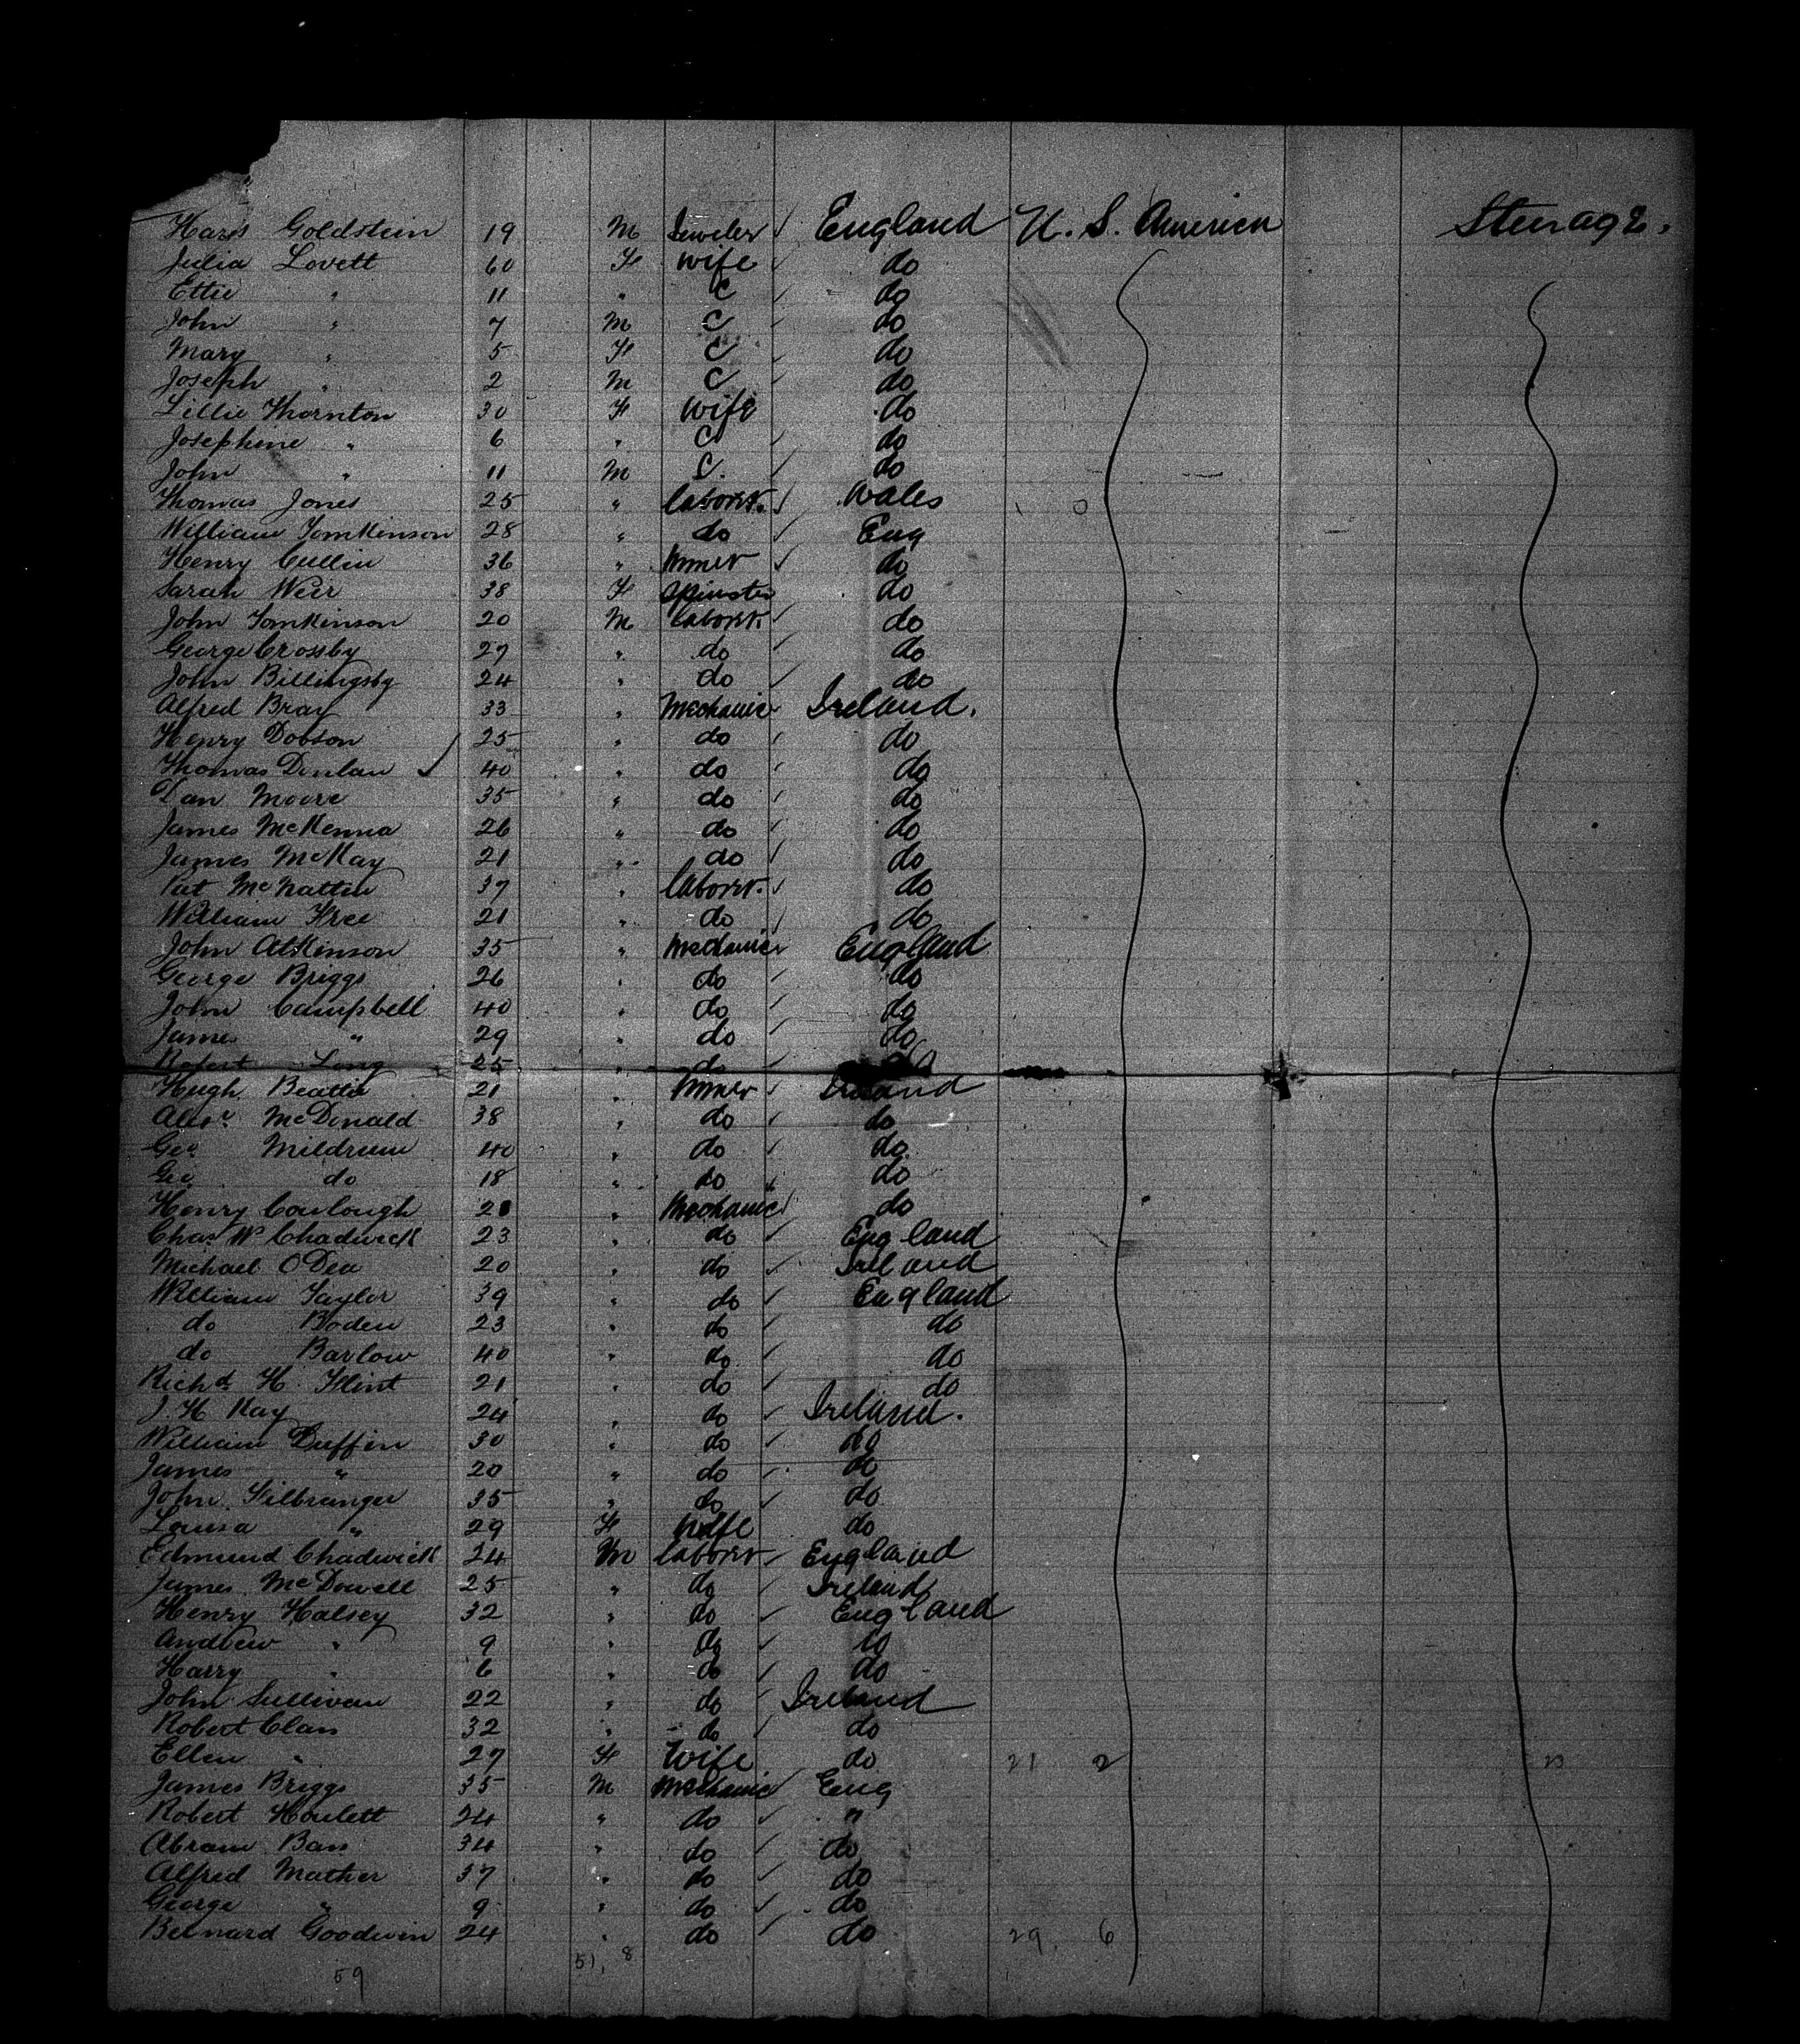 Haris Goldstein 19 M Jeweler England U. S. America Steerage.
Julia Lovett 60 F Wife do
Ettie " 11 " C do
John " 7 M C do
Mary " 5 F C do
Joseph " 2 M C do
Lillie Thornton 30 F Wife do
Josephine " 6 " C do
John " 11 M C. do
Thomas Jones 25 " laborer. Wales
William Tomkinson 28 " do Eng
Henry Cullin 36 " Miner do
Sarah Weir 38 F Spinster do
John Tomkinson 20 M laborer do
George Crossby 27 " do do
John Billingsby 24 " do do
Alfred Bray 33 " Mechanic Ireland.
Henry Dobson 25 " do do
Thomas Donlan 40 " do do
Dan Moore 35 " do do
James McKenna 26 " do do
James McKay 21 " do do
Pat McNatten 37 " laborer. do
William Free 21 " do do
John Atkinson 35 " Mechanic England
George Briggs 26 " do do
John Campbell 40 " do do
James " 29 " do do
Robert Long 25 " do
Hugh Beattie 21 " Miner Ireland
Alexr McDonald 38 " do do
Geo Mildrum 40 " do do
Geo do 18 " do do
Henry Coulough 2 " Mechanic do
Chas W Chadwick 23 " do England
Michael ODea 20 " do Ireland
William Taylor 39 " do England
do Boden 23 " do do
do Barlow 40 " do do
Richd H. Flint 21 " do do
J. H Kay 24 " do Ireland.
William Duffin 30 " do do
James " 20 " do do
John 35 " do do
Louisa " 29 F Wife do
Edmund Chadwick 24 M laborer England
James McDowell 25 " do Ireland
Henry Halsey 32 " do England
Andrew " 9 " do do
Harry " 6 " do do
John Sullivan 22 " do Ireland
Robert Clan 32 " do do
Ellen " 27 F Wife do 21 2 23
James Briggs 35 M Mechanic Eng
Robert Houlett 24 " do "
Abram Bass 34 " do do
Alfred Mather 37 " do do
George " 9 " do do
Bernard Goodwin 24 " do do 29. 6
51, 8
59